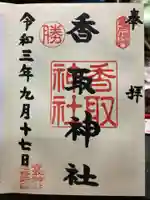 奉拝
香取神社
香取神社
勝
令和三年九月十七日